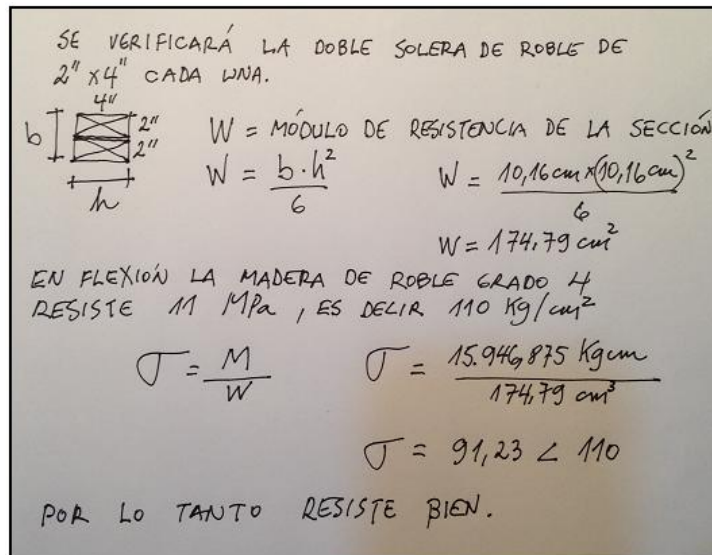 SE VERIFICARÁ LA DOBLE SOLERA DE ROBLE DE
2" x4" CADA UNA.
4"
b
2"
2"
h
W = MÓDULO DE RESISTENCIA DE LA SECCIÓN
W = b·h² / 6
W = 10,16 cm x (10,16 cm)² / 6
W = 174,79 cm²
EN FLEXIÓN LA MADERA DE ROBLE GRADO 4
RESISTE 11 MPa, ES DECIR 110 Kg/cm²
σ = M / W
σ = 15.946,875 Kgcm / 174,79 cm³
σ = 91,23 < 110
POR LO TANTO RESISTE BIEN.